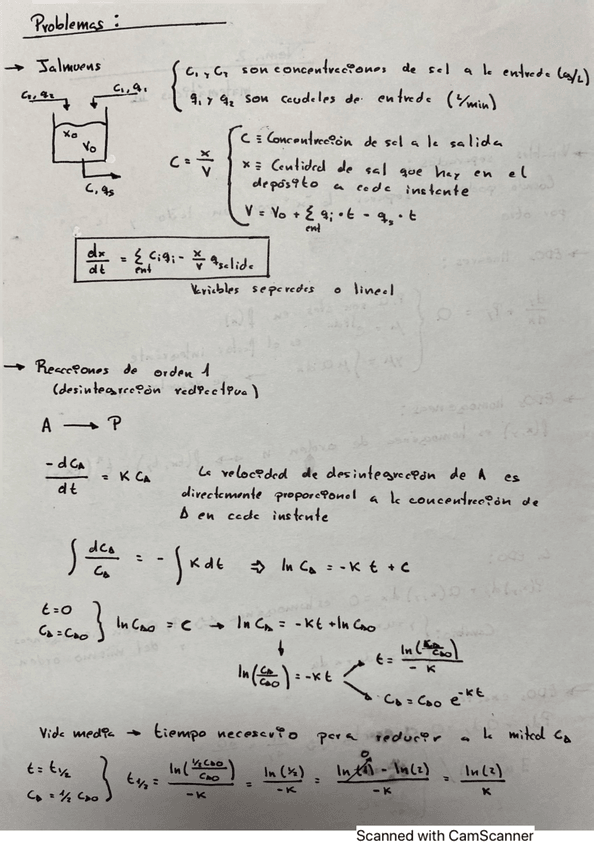 Problemas:
→ Salmuens
C₁ y C₂ son concentraciones de sal a la entrada (g/L)
q₁ y q₂ son caudales de entrada (L/min)
C₂, q₂ C₁, q₁
x₀
V₀
C, qs
C = x/V
C ≡ Concentración de sal a la salida
x ≡ Cantidad de sal que hay en el
depósito a cada instante
V = V₀ + Σ qᵢ · t - qs · t
ent
dx/dt = Σ Cᵢqᵢ - x/V q salida
ent
Variables separadas o lineal
→ Reacciones de orden 1
(desintegración radiactiva)
A → P
-dCA/dt = K CA
La velocidad de desintegración de A es
directamente proporcional a la concentración de
A en cada instante
∫ dCA/CA = - ∫ K dt ⇒ ln CA = -K t + C
t=0
CA = CA0 } ln CA0 = C → ln CA = -Kt + ln CA0
↓
ln(CA/CA0) = -Kt
t = ln(CA/CA0)/-K
CA = CA0 e^-Kt
Vida media → tiempo necesario para reducir a la mitad CA
t = t1/2
CA = 1/2 CA0 } t1/2 = ln(1/2 CA0/CA0)/-K = ln(1/2)/-K = ln(1) - ln(2)/-K = ln(2)/K
0
Scanned with CamScanner